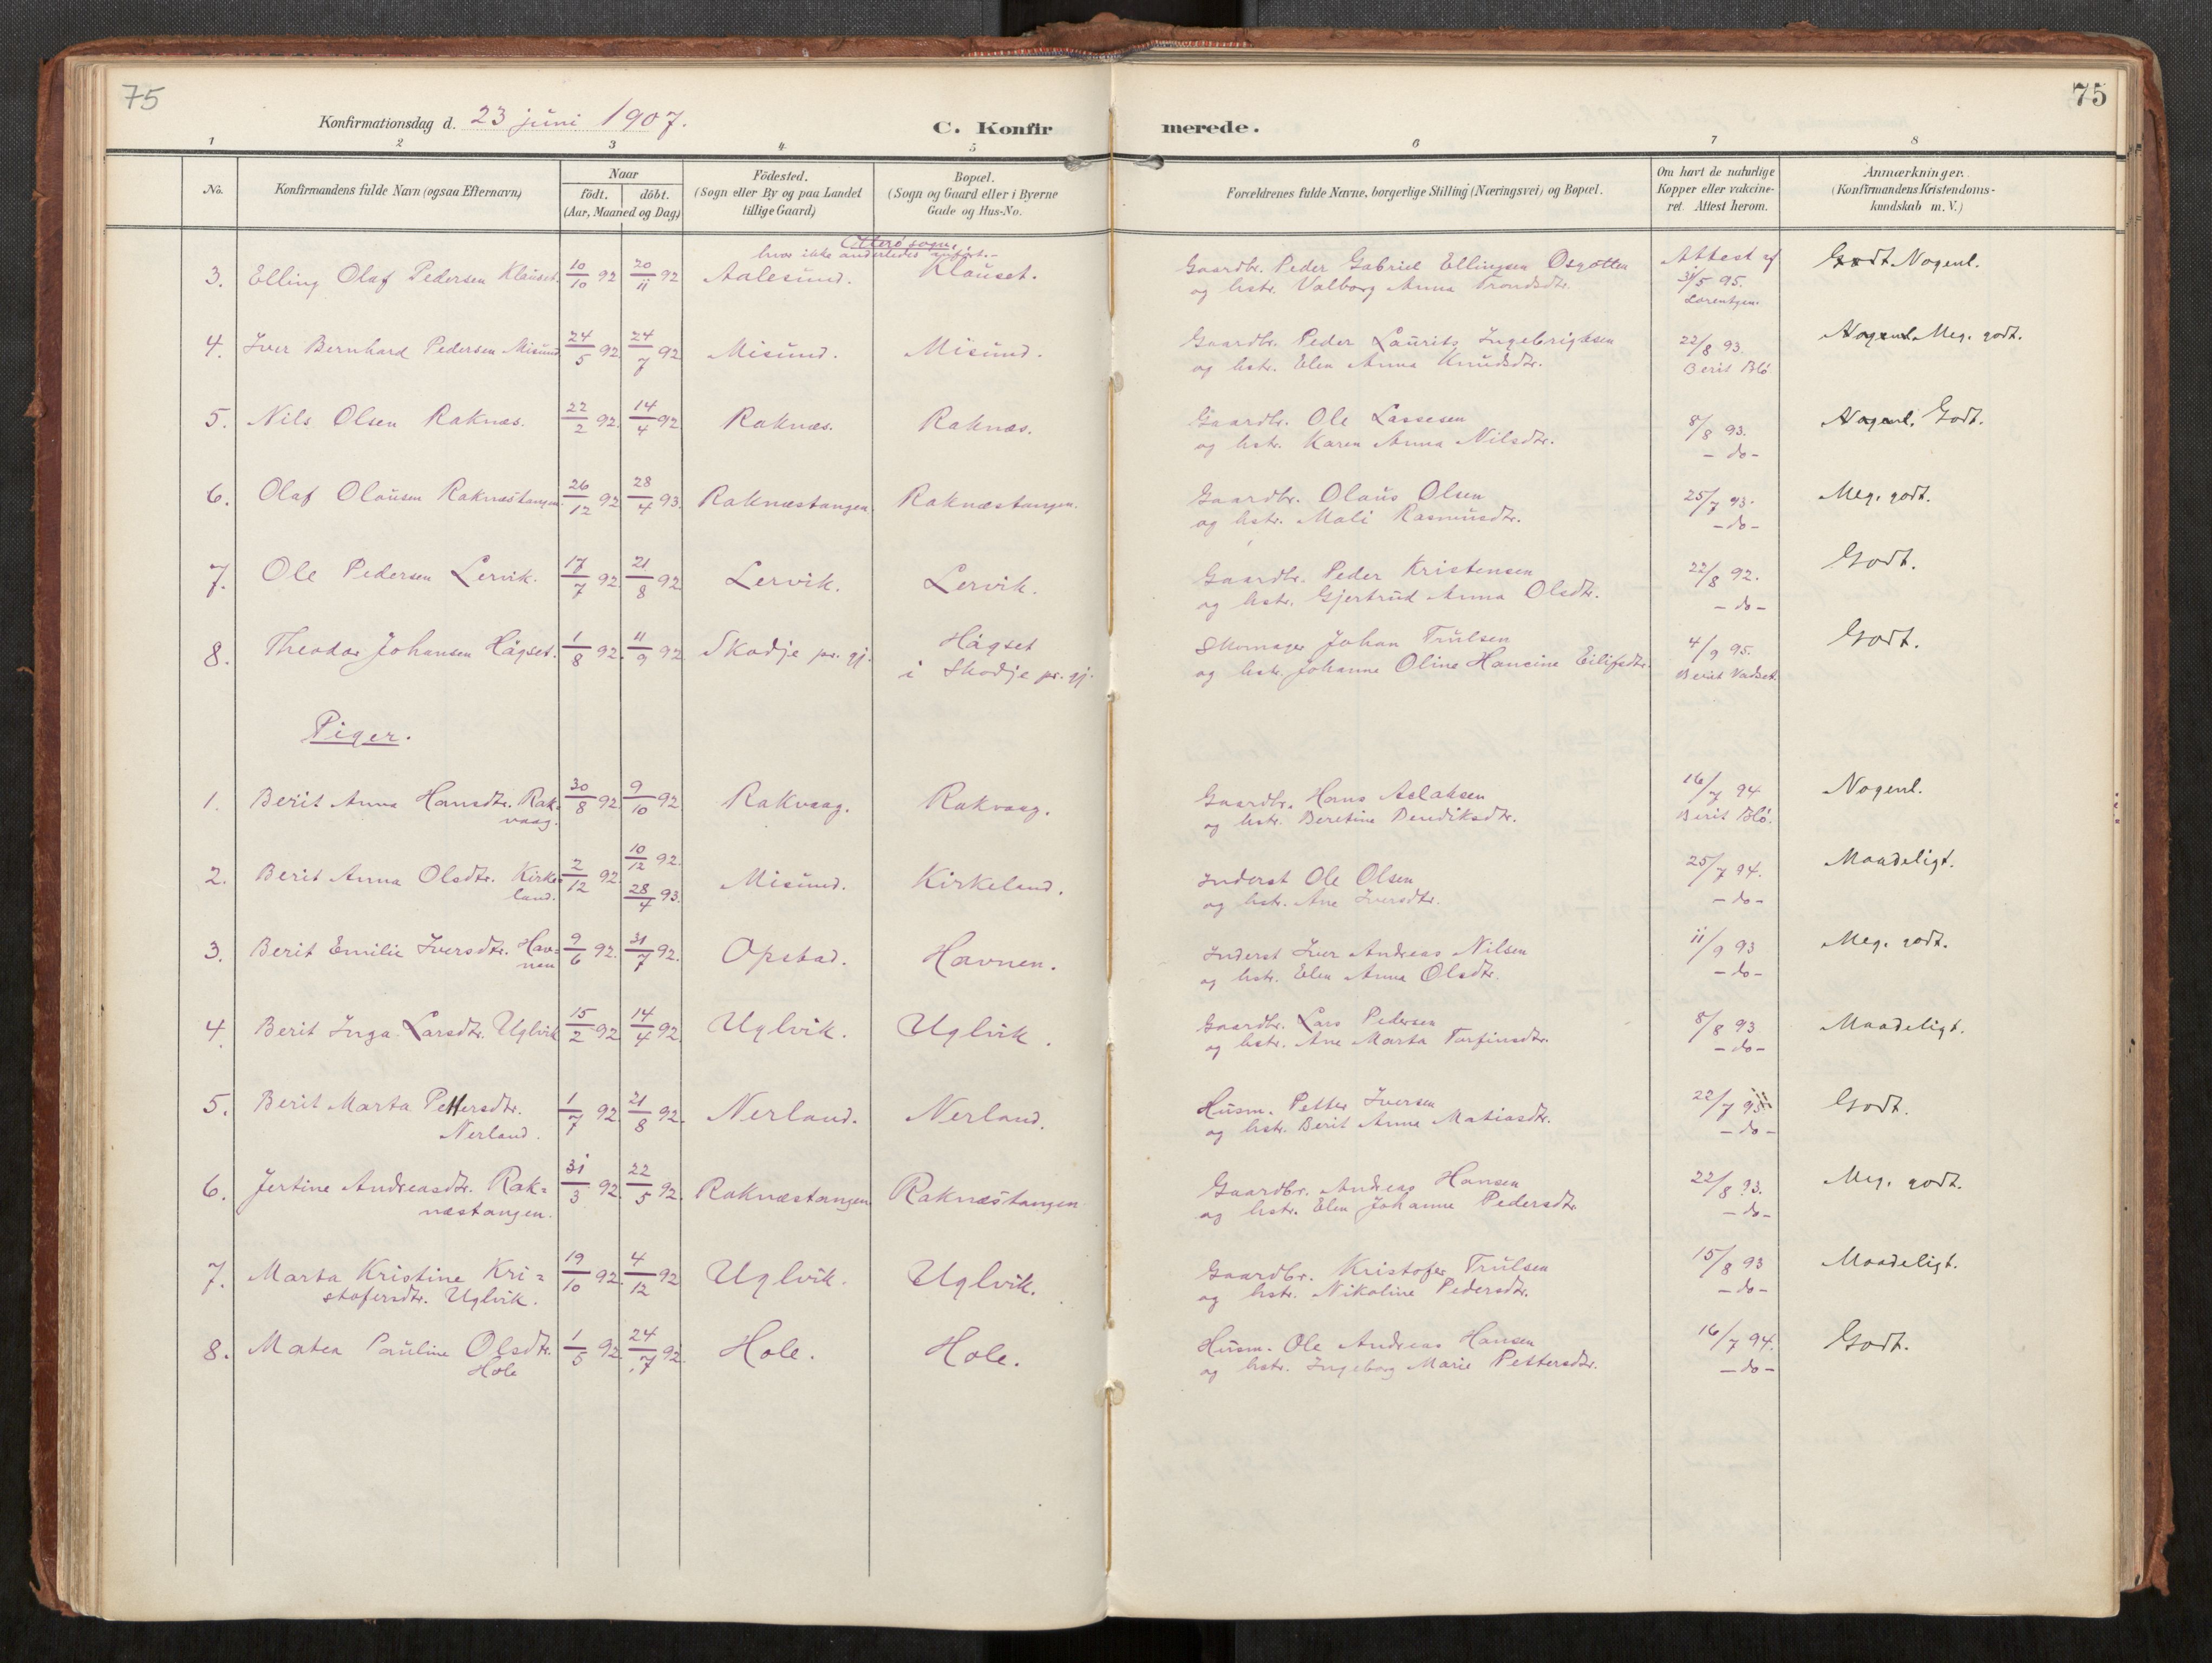 75
75
Konfirmationsdag d. 23 juni 1907.
C. Konfirmerede.
1 2 3 4 5 6 7 8
No.
Konfirmandens fulde Navn (ogsaa Efternavn)
Naar
födt. döbt.
(Aar, Maaned og Dag)
Födested.
(Sogn eller By og paa Landet
tillige Gaard)
Bopæl.
(Sogn og Gaard eller i Byerne
Gade og Hus-No.
Forældrenes fulde Navne, borgerlige Stilling (Næringsvei) og Bopæl.
Om havt de naturlige
Kopper eller vakcine-
ret. Attest herom.
Anmærkninger.
(Konfirmandens Kristendoms-
kundskab m. V.)
Otterö sogn,
hvor ikke anderledes anfört.-
3. Elling Olaf Pedersen Klauset. 10/10 92 20/11 92 Aalesund. Klauset.
Gaardbr. Peder Gabriel Ellingsen Osgotten
og hstr. Valborg Anna Trondsdtr.
Attest af
31/5 95.
Lorentzen.
Godt Nogenl.
4. Iver Bernhard Pedersen Misund 24/5 92 24/7 92 Misund. Misund.
Gaardbr. Peder Laurits Ingebrigtsen
og hstr. Elen Anna Knudsdtr.
22/8 93.
Berit Blö.
Nogenl. Meg. godt.
5. Nils Olsen Raknæs. 22/2 92. 14/4 92 Raknæs. Raknæs.
Gaardbr. Ole Lassesen
og hstr. Karen Anna Nilsdtr.
8/8 93.
- do -
Nogenl. Godt.
6. Olaf Olausen Raknæstangen 26/12 92 28/4 93. Raknæstangen. Raknæstangen.
Gaardbr. Olaus Olsen
og hstr. Mali Rasmusdtr.
25/7 93.
- do -
Meg. godt.
7. Ole Pedersen Lervik. 17/7 92 21/8 92 Lervik. Lervik.
Gaardbr. Peder Kristensen
og hstr. Gjertrud Anna Olsdtr.
22/8 92.
- do -
Godt.
8. Theodor Johansen Hågset. 1/8 92. 11/9 92 Skodje pr. gj. Hågset
i Skodje pr. gj.
Skomager Johan Trulsen
og hstr. Johanne Oline Hansine Eilifsdtr.
4/9 95.
Berit Vadset
Godt.
Piger.
1. Berit Anna Hansdtr. Rak-
vaag. 30/8 92 9/10 92 Rakvaag. Rakvaag.
Gaardbr. Hans Aslaksen
og hstr. Beretine Bendiksdtr.
16/7 94
Berit Blö.
Nogenl.
2. Berit Anna Olsdtr. Kirke-
land. 2/12 92. 10/12 92. 28/4 93. Misund. Kirkeland.
Inderst Ole Olsen
og hstr. Ane Iversdtr.
25/7 94.
- do -
Maadeligt.
3. Berit Emilie Iversdtr. Hav=
nen 9/6 92. 31/7 92. Opstad. Havnen.
Inderst Iver Andreas Nilsen
og hstr. Elen Anna Olsdtr.
11/9 93
- do -
Meg. godt.
4. Berit Inga Larsdtr. Uglvik 15/2 92 14/4 92. Uglvik. Uglvik.
Gaardbr. Lars Pedersen
og hstr. Ane Marta Torfinsdtr.
8/8 93
- do -
Maadeligt.
5. Berit Marta Pettersdtr.
Nerland. 1/7 92. 21/8 92. Nerland. Nerland.
Husm. Petter Iversen
og hstr. Berit Anna Matiasdtr.
22/7 95
- do -
Godt.
6. Jertine Andreasdtr. Rak=
næstangen. 31/3 92. 22/5 92. Raknæstangen Raknæstangen
Gaardbr. Andreas Hansen
og hstr. Elen Johanne Pedersdtr.
22/8 93.
- do -
Meg. godt.
7. Marta Kristine Kri=
stofersdtr. Uglvik. 19/10 92. 4/12 92 Uglvik. Uglvik.
Gaardbr. Kristofer Trulsen
og hstr. Nikoline Pedersdtr.
15/8 93
- do -
Maadeligt.
8. Matea Pauline Olsdtr.
Hole 1/5 92. 24/7 92. Hole. Hole.
Husm. Ole Andreas Hansen
og hstr. Ingeborg Marie Pettersdtr.
16/7 94.
- do -
Godt.